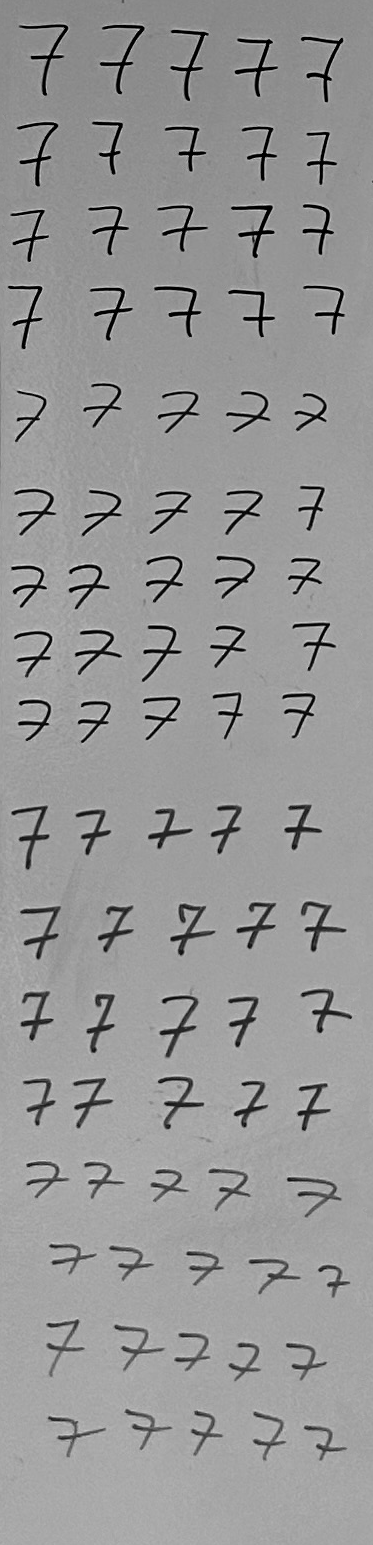 7 7 7 7 7
7 7 7 7 7
7 7 7 7 7
7 7 7 7 7
7 7 7 7 7
7 7 7 7 7
7 7 7 7 7
7 7 7 7 7
7 7 7 7 7
7 7 7 7 7
7 7 7 7 7
7 7 7 7 7
7 7 7 7 7
7 7 7 7 7
7 7 7 7 7
7 7 7 7 7
7 7 7 7 7